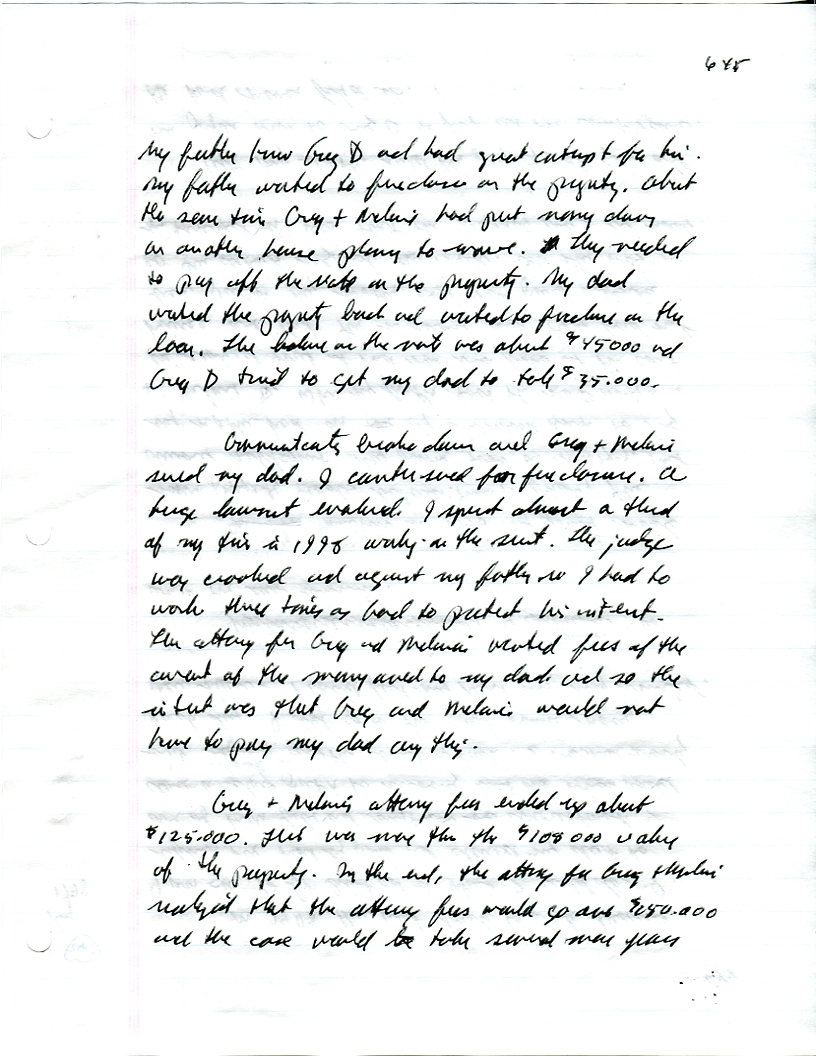 645
My father knew Greg D and had great contempt for him.
My father wanted to foreclose on the property. About
the same time Greg + Melanie had put money down
on another house plang to move. They needed
to pay off the note on the property. My dad
wanted the property back and wanted to foreclose on the
loan. The balance on the note was about $45000 and
Greg D tried to get my dad to take $35.000.
Communicatis broke down and Greg + Melanie
sued my dad. I countersued for foreclosure. A
huge lawsuit evolved. I spent almost a third
of my time in 1998 working on the suit. The judge
was crooked and against my father so I had to
work three times as hard to protect his interest.
The attorney for Greg and Melanie wanted fees of the
amount of the money owed to my dad and so the
intent was that Greg and Melanie would not
have to pay my dad any thing.
Greg + Melanie attorney fees ended up about
$125.000. That was more than the $108000 value
of the property. In the end, the attorney for Greg + Melanie
realized that the attorney fees would go over $250.000
and the case would take several more years